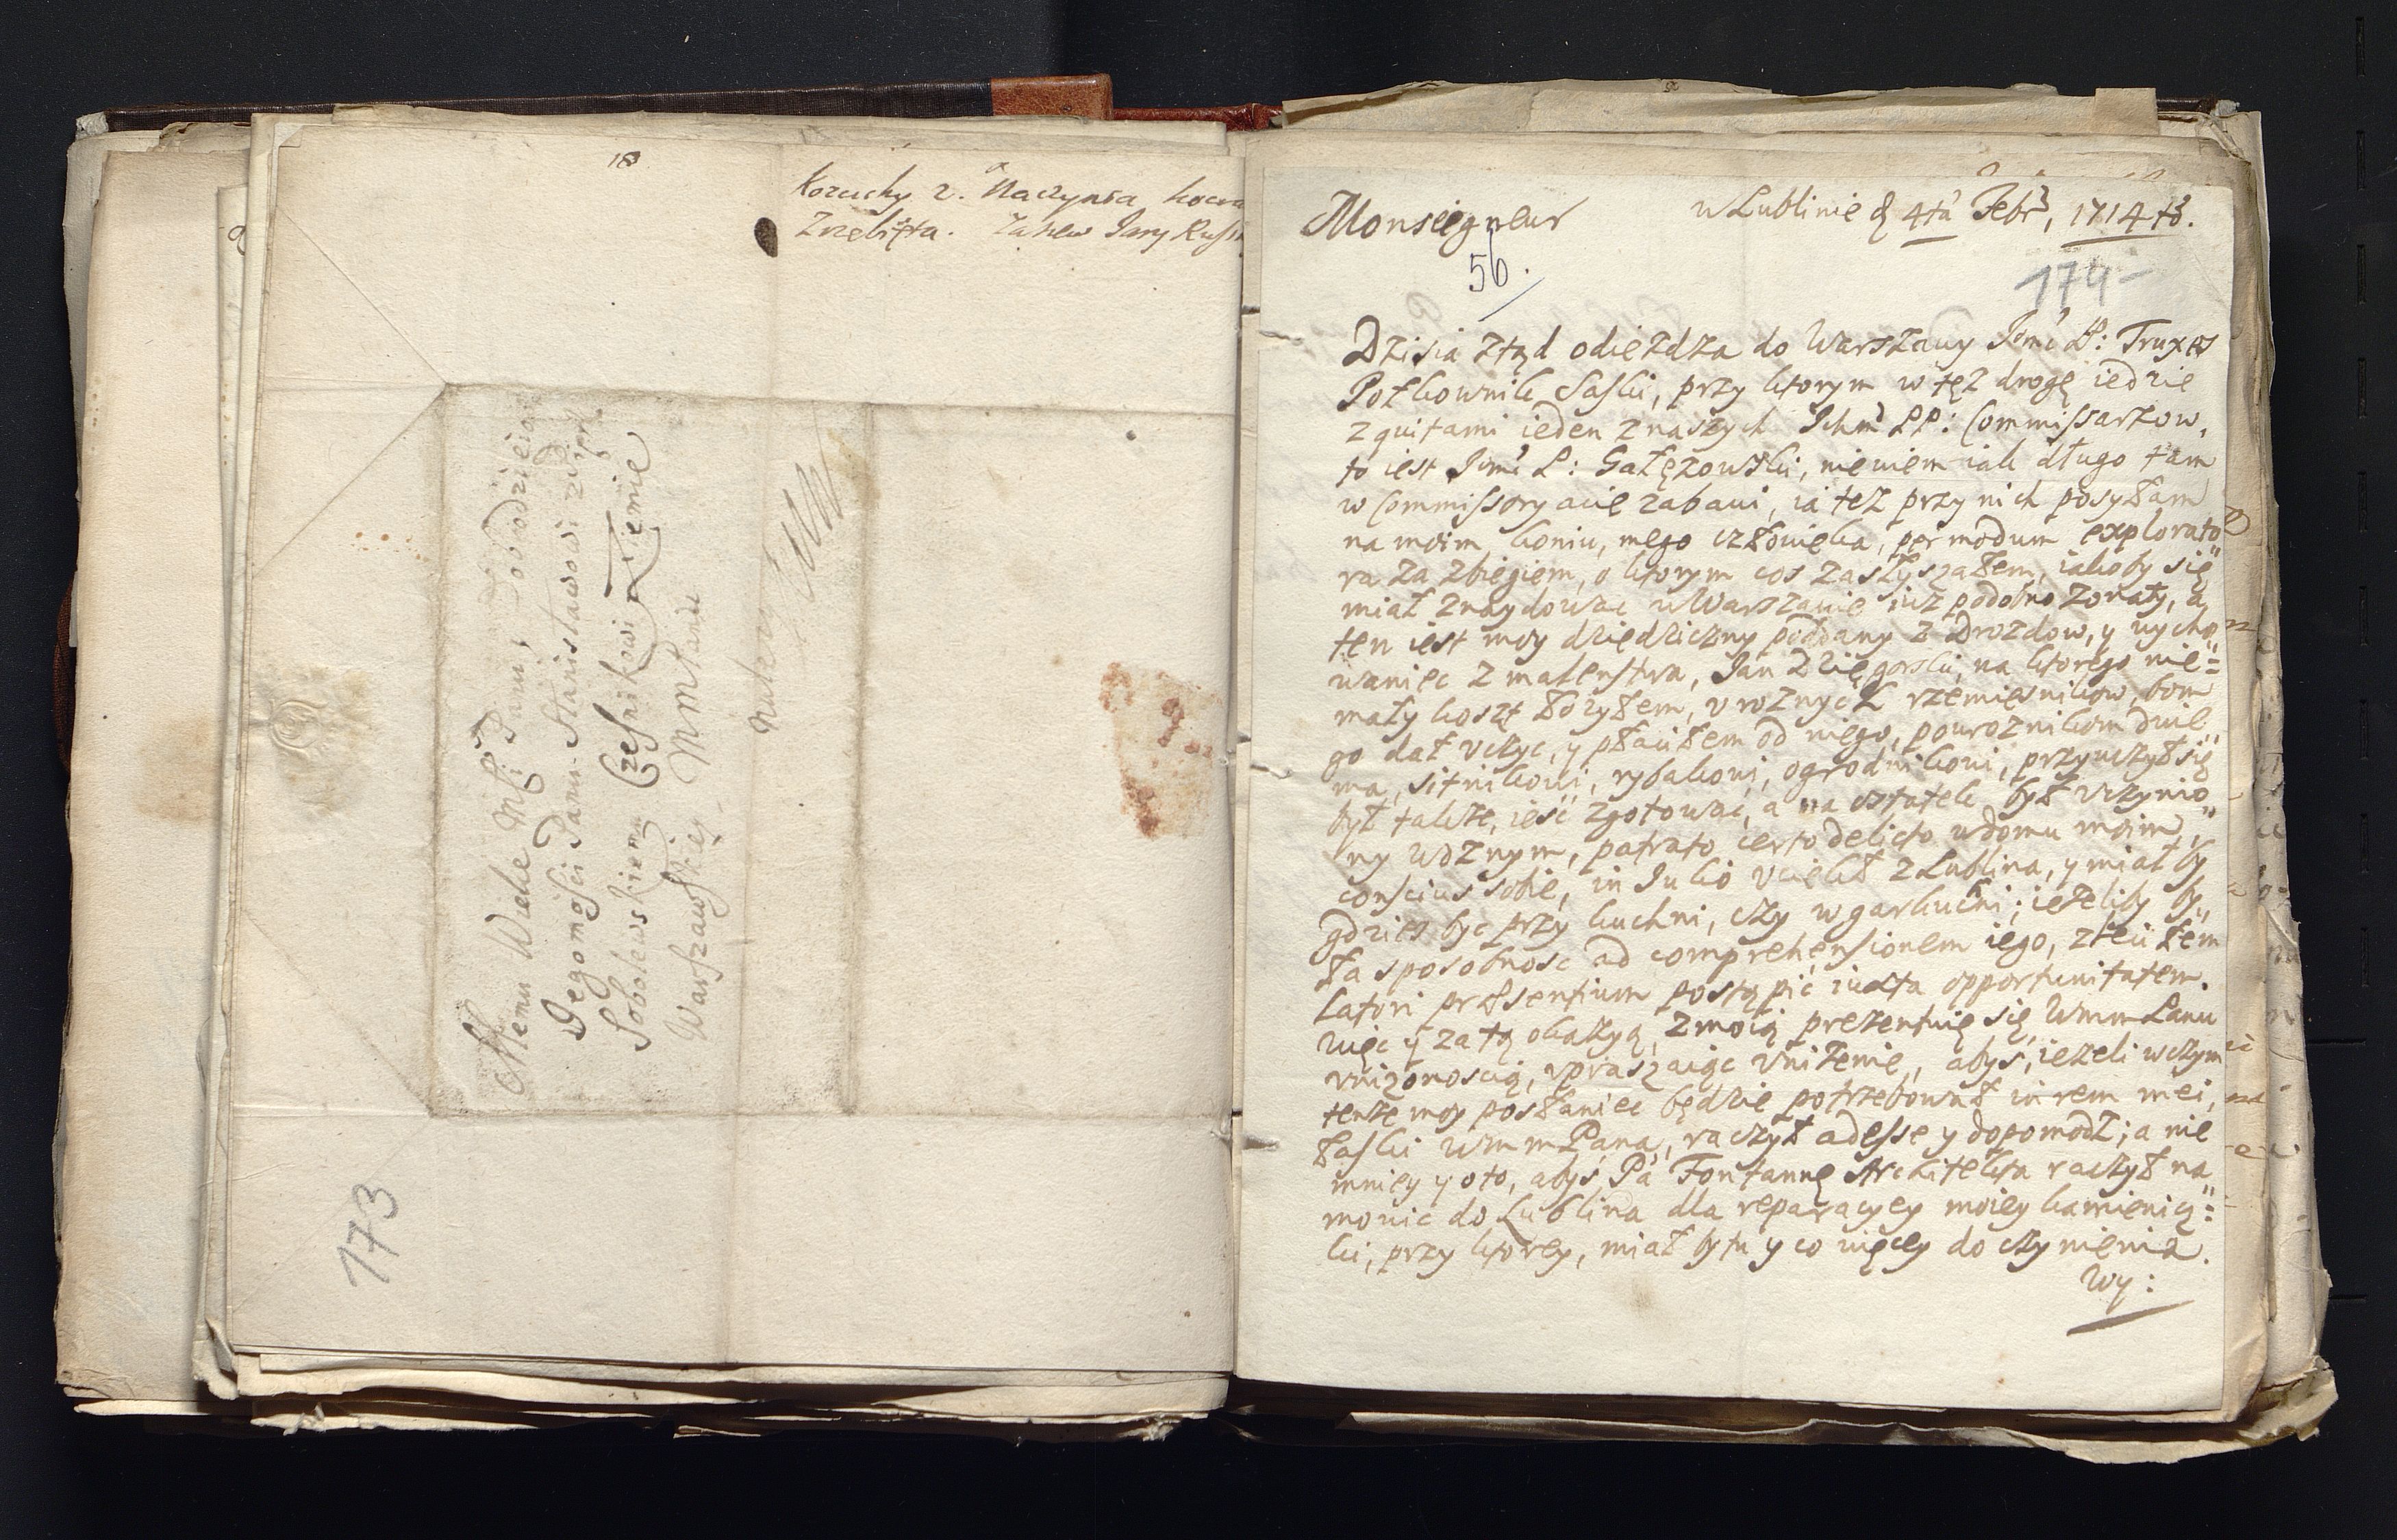 18
Kozuchy 2. Naczynia
Zrzebięta. Zatem Jary
Memu Wielce Mści Panu, y Dobrodzieiowi
Jegomości Panu Stanisławowi
Sobolewskiemu Czesnikowi Ziemie
Warszawskiey MM Panu
173
Monseigneur
w Lublinie d 4ta Febr, 1714to.
56.
174
Dzisia ztąd odieżdza do Warszawy Jemć P: Truxes
Połkownik Saski, przy ktorym w tęż drogę iedzie
z quitami ieden z naszych Ichm PP: Commissarzow,
to iest Jemć P: Gałęzowski, niewiem iak długo tam
w Commissoryacie zabawi, ia też przy nich posyłam
na moim koniu, mego człowieka, per modum explorato"
ra za zbiegiem, o ktorym cos zasłyszałem, iakoby się
miał znaydowac w Warszawie iuz podobno zonaty, a
ten iest moy dziedziczny poddany z Drozdow, y wycho"
waniec z małenstwa, Jan Dzięgorski, na ktorego nie=
mały koszt łozyłem, v roznych rzemięsnikow, bom
go dał vczyc, y płaciłem od niego, powroznikom dwie"
ma, sitnikowi, rybakowi, ogrodnikowi, przyuczył się
był takze, ieść zgotować, a na ostatek był vczynio"
ny woznym, patrato certo delicto w domu moim,
conscius sobie, in Julio vciekł z Lublina, y miał by
gdzies byc przy kuchni, czy w garkuchni; ieżeliby by"
ła sposobnosc ad comprehensionem iego, zleciłem
Latori præsentium postąpić iuxta opportunitatem.
Więc y za tą okazyą, z moią prezentuię się WmmPanu
vnizonoscią, vpraszaiąc vniżenie, abys, ieżeli w czym
tenże moy posłaniec będzie potrzebował in rem mei,
łaski WmmPana, raczył adesse y dopomodz; a nie
mniey y oto, abys Pa Fontannę Architekta raczył na
mowic do Lublina dla reparacyey moiey kamienicz=
ki, przy ktorey, miał by tu y co więcey do czynienia.
Wy: